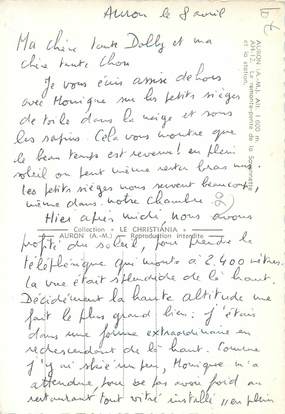 Auron le 8 avril
Ma chère tante Dolly et ma
chère tante Chou
Je vous écris assise dehors
avec Monique sur les petits sièges
de toile dans la neige et sous
les sapins. Cela vous montre que
le beau temps est revenu! en plein
soleil on peut même rester bras nus.
Les petits sièges nous servent beaucoup,
même dans notre chambre.
Hier après midi, nous avons
profité du soleil, pour prendre le
téléphérique qui monte à 2.400 mètres.
La vue était splendide de là haut.
Décidément la haute altitude me
fait le plus grand bien: j'étais
dans une forme extraordinaire en
redescendant de là haut. Comme
j'y ai skié un peu, Monique m'a
attendue, pour ne pas avoir froid au
restaurant tout vitré installé "en plein
Collection « LE CHRISTIANIA »
AURON (A.-M.) — Reproduction interdite
AURON (A.-M.). Alt. 1.600 m.
La remonte-pente de la
et la station.